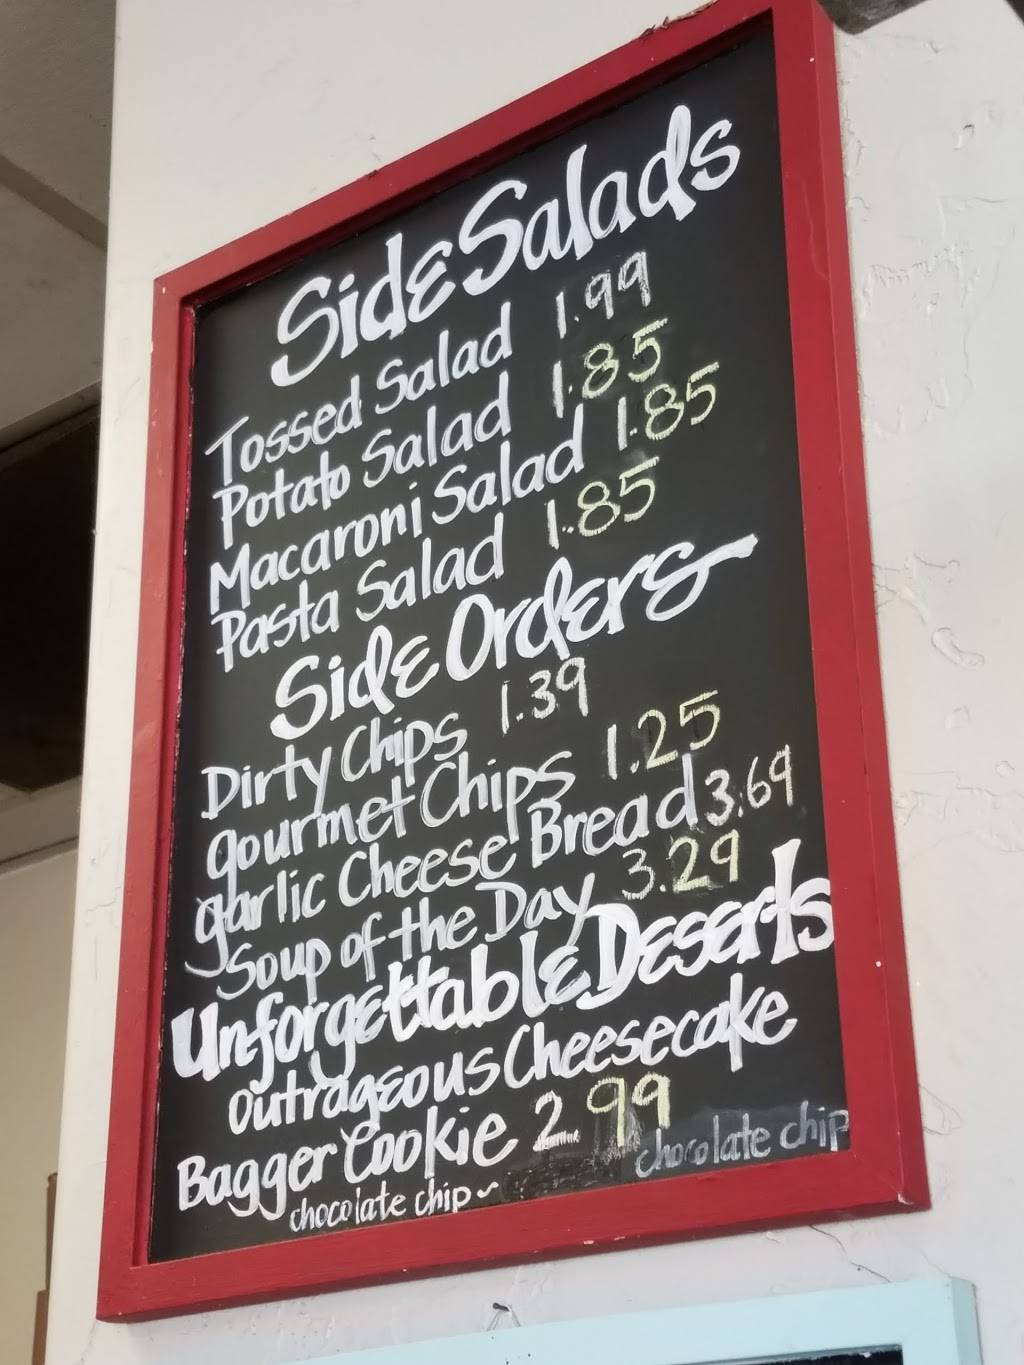 Side Salads
Tossed Salad 1.99
Potato Salad 1.85
Macaroni Salad 1.85
Pasta Salad 1.85
Side Orders
Dirty Chips 1.39
gourmet Chips 1.25
garlic Cheese Bread 3.69
Soup of the Day 3.29
Unforgettable Desserts
Outrageous Cheesecake
Bagger Cookie 2.99
chocolate chip~ chocolate chip